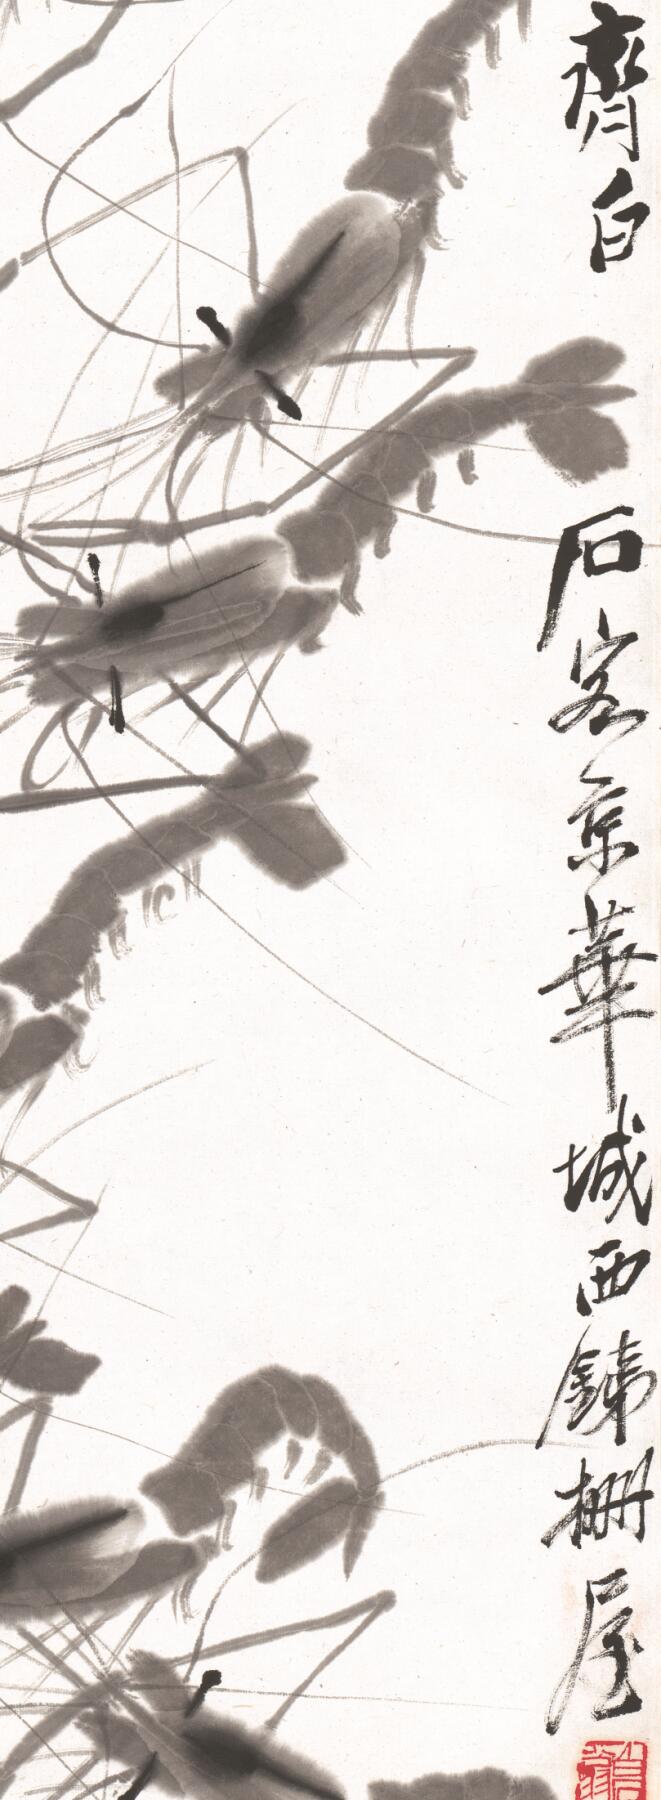 齊白
石客京華城西銕柵屋